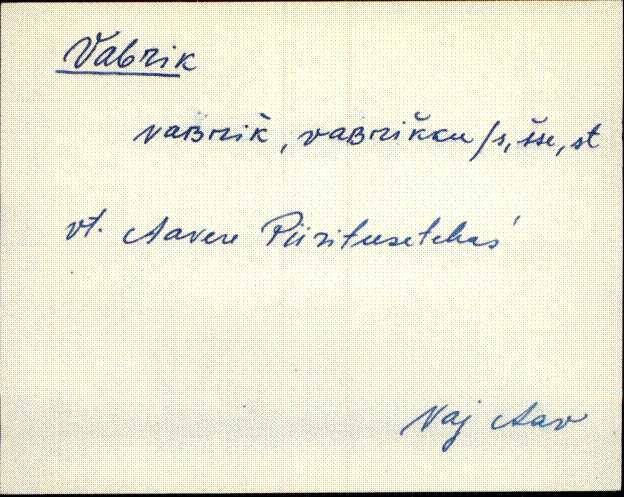 Vabrik
vaʙrik̆, vaʙrik̆ku/s, s̆se, st
vt. Aavere Piiritusetehas
Vaj Aav